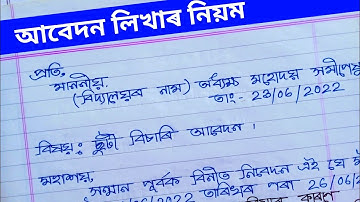 আবেদন লিখাৰ নিয়ম
প্ৰতি,
মাননীয়,
(বিদ্যালয়ৰ নাম) অধ্যক্ষ মহোদয় সমীপেষু
তাং:- 23/06/2022
বিষয়: ছুটী বিচাৰি আবেদন।
মহাশয়,
সন্মান পূৰ্বক বিনীত নিবেদন এই যে
/06/2022 তাৰিখৰ পৰা 26/06/2
কাৰণ